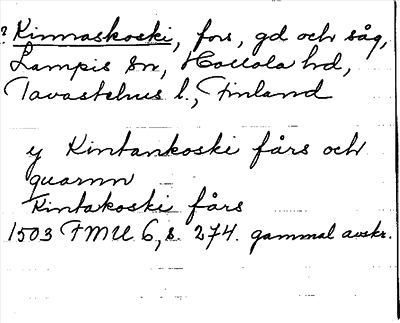 ? Kinnaskoski, fors, gd och såg,
Lampis sn, Hollola hd,
Tavastehus l., Finland
y Kintankoski fårs och
quarnn
Kintakoski fårs
1503 FMU 6, s. 274. gammal avskr.